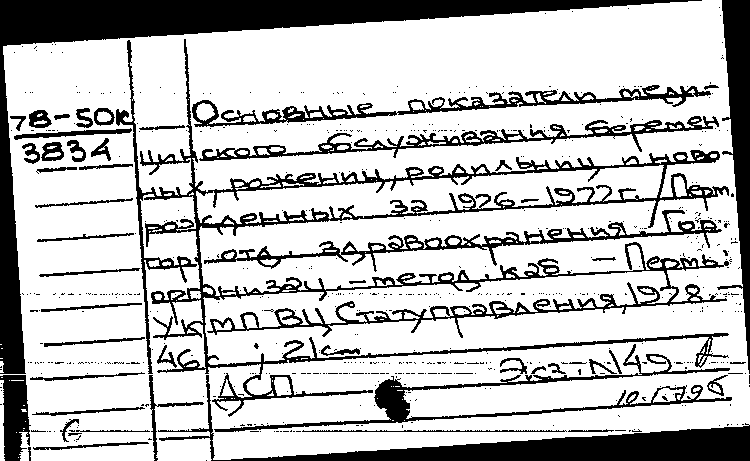 78-50к
3834
Основные показатели меди-
цинского обслуживания беремен-
ных, рожениц, родильниц и ново-
рожденных за 1976-1977гг. / Перм.
гор. отд. здравоохранения. Гор.
организац.-метод. каб. - Пермь:
УКМП ВЦ Статуправления, 1978. -
46с ; 21см.
ДСП. Экз. N49
10.I.79